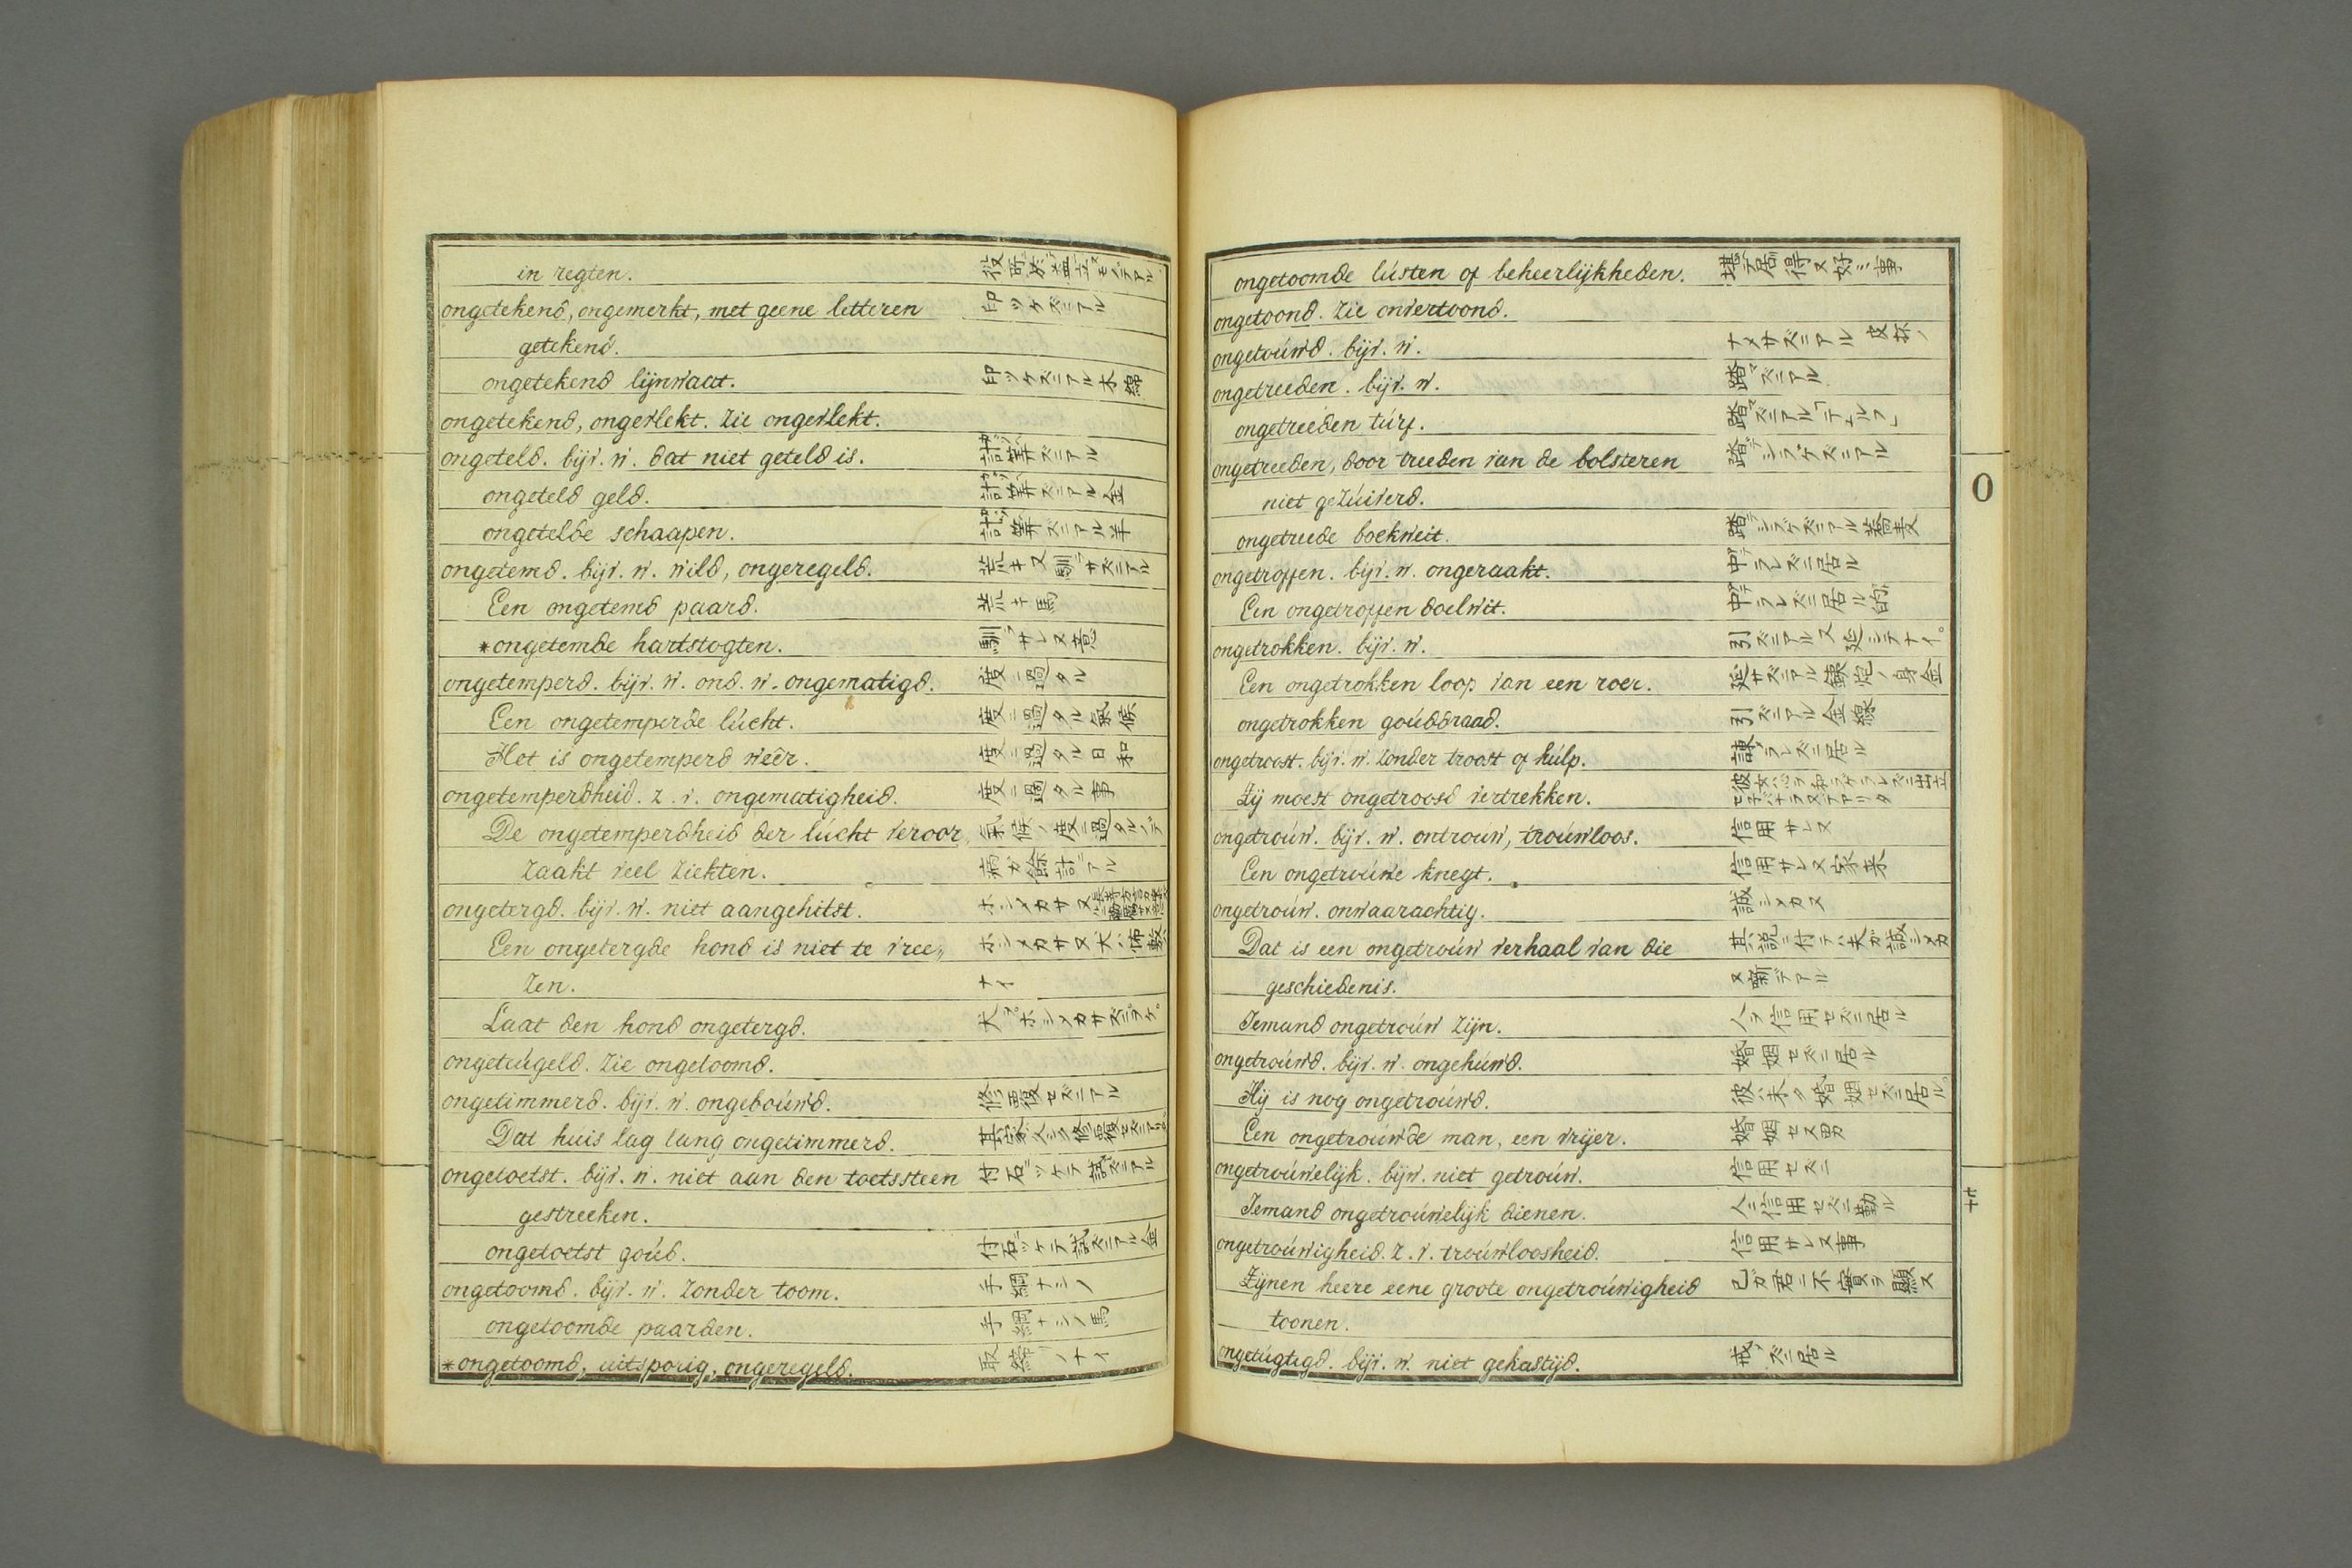 in regten.
ongetekend, ongemerkt, met geene letteren 印ツケズニアル
getekend.
ongetekend lijnwaat. 印ツケズニアル木綿
ongetekend, ongevlekt. Zie ongevlekt.
ongeteld. bijv. w. dat niet geteld is. 計算ズニアル
ongeteld geld. 計算ズニアル金
ongetelde schaapen. 計算ズニアル羊
ongetemd. bijv. w. wild, ongeregeld. 荒キ又馴サズニアル
Een ongetemd paard. 荒キ馬
*ongetemde hartstogten. 馴ラサレヌ意
ongetemperd. bijv. w. ond. w. ongematigd. 度ニ過タル
Een ongetemperde lúcht. 度ニ過タル氣候
Het is ongetemperd weêr. 度ニ過タル日和
ongetemperdheid. z. v. ongematigheid. 度ニ過タル事
De ongetemperdheid der lúcht veroor„ 氣候ノ度ニ過タルデ
zaakt veel ziekten. 病ガ餘計アル
ongetergd. bijv. w. niet aangehitst. ホシメカサヌ
Een ongetergde hond is niet te vree„ ホシメカサヌ犬ハ怖敷
zen. ナイ
Laat den hond ongetergd. 犬ヲホシメカサズニヲケ。
ongeteúgeld. Zie ongetoomd.
ongetimmerd. bijv. w. ongeboúwd. 修覆セズニアル
Dat húis lag lang ongetimmerd. 其家久シク修覆セズニアリ。
ongetoetst. bijv. w. niet aan den toetssteen 付石ツケテ試ズニアル
gestreeken.
ongetoetst goúd. 付石ツケテ試ズニアル金
ongetoomd. bijv. w. zonder toom. 手綱ナシノ
ongetoomde paarden. 手綱ナシノ馬
*ongetoomd, uitsporig, ongeregeld. 取締リノナイ
ongetoomde lústen of beheerlijkheden. 堪ヘ居得ヌ好ミ事
ongetoond. Zie onvertoond.
ongetoúwd. bijv. w. ナメサズニアル
ongetreeden. bijv. w.踏マズニアル
ongetreeden túrf. 踏マズニアル「テュルフ」
ongetreeden, door treeden van de bolsteren 踏デシラゲズニアル
niet gezúiverd.
ongetreede boekweit. 踏デシラゲズニアル蕎麦
ongetroffen. bijv. w. ongeraakt. 中テラレズニ居ル
Een ongetroffen doelwit. 中テラレズニ居ル的
ongetrokken. bijv. w. 引ズニアル又延シテナイ。
Een ongetrokken loop van een roer. 延サズニアル鉄炮ノ身金
ongetrokken goúddraad. 引ズニアル金線
ongetroost. bijv. w. zonder troost of húlp. 諫メラレズニ居ル
Zij moest ongetroosd vertrekken.
ongetroúw. bijv. w. ontrouw, troúwloos. 信用サレヌ
Een ongetroúwe knegt. 信用サレヌ家来
ongetroúw. onwaarachtig. 誠シメカヌ
Dat is een ongetroúw verhaal van die 其説ニ付テハ夫ガ誠シメカ
geschiedenis. ヌ噺デアル
Iemand ongetroúw zijn. 人ヲ信用セズニ居ル
ongetroúwd. bijv. w. ongehúwd. 婚姻セズニ居ル
Hij is nog ongetroúwd. 彼ハ未タ婚姻セズニ居ル。
Een ongetroúwde man, een vrijer. 婚姻セヌ男
ongetroúwelijk. bijw. niet getroúw. 信用セズニ
Iemand ongetroúwelijk dienen. 人ニ信用セズニ勤ル
ongetroúwigheid. z. v. troúwloosheid. 信用サレヌ事
Zijnen heere eene groote ongetroúwigheid 己ガ君ニ不實ヲ顯ス
toonen.
ongetúgtigd. bijv. w. niet gekastijd. 戒メズニ居ル
O